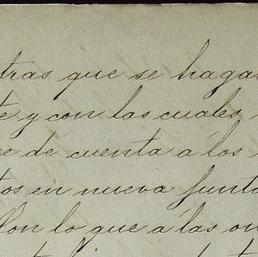 tras que se hagan
te y con las cuales,
de cuenta a los
tos en nueva Junta
Con lo que a las on